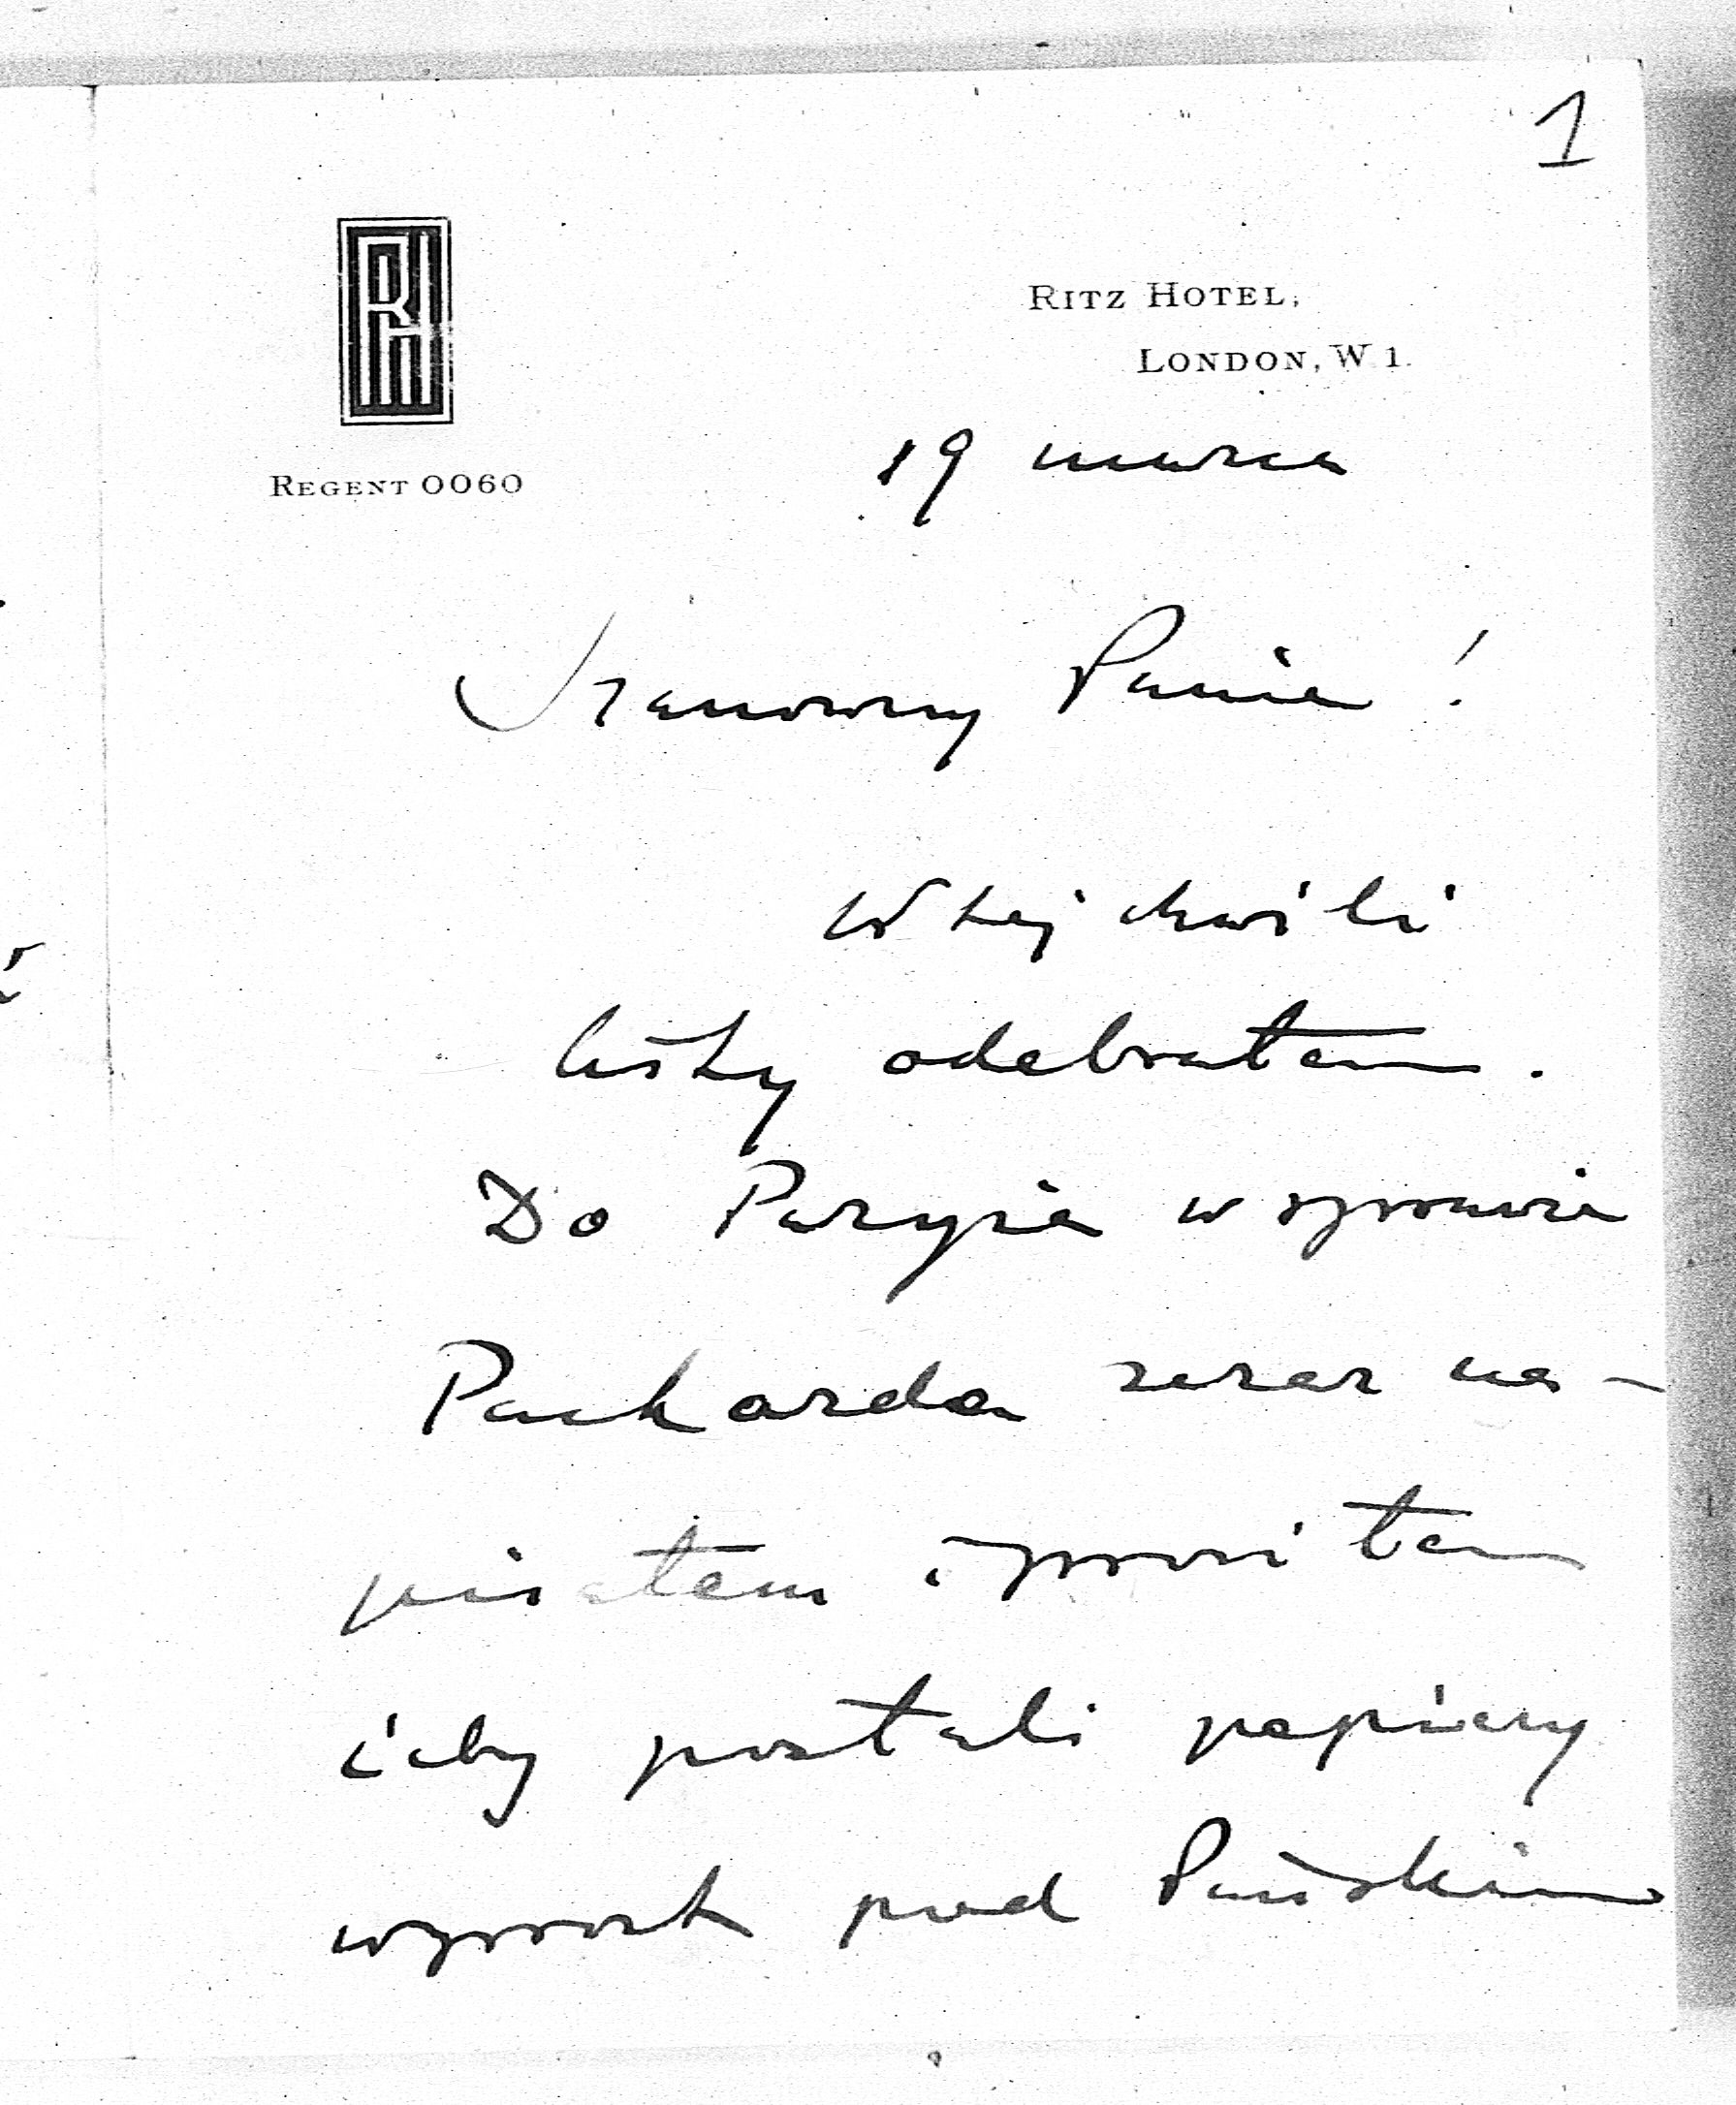 1
RH
RITZ HOTEL,
LONDON, W 1.
REGENT 0060
19 marca
Szanowny Panie!
W tej chwili
listy odebrałem.
Do Paryża w sprawie
Packarda zaraz na-
pisałem i prosiłem
żeby posłali papiery
wprost pod Pańskim